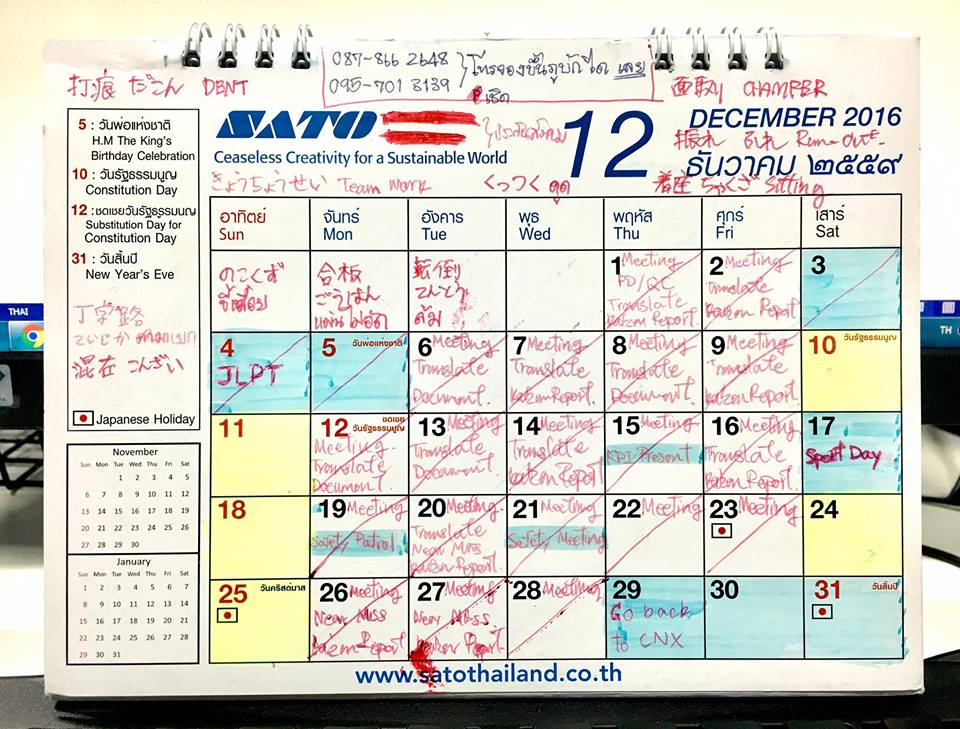 打痕 だこん DENT
087-866 2648
095-701 3139
面取り CHAMFER
SATO
Ceaseless Creativity for a Sustainable World
12
DECEMBER 2016
ธันวาคม ๒๕๕๙
きょうちょうせい Team Work
くっつく
ดูด
着座 ちゃくざ Sitting
5 : วันพ่อแห่งชาติ
H.M The King's
Birthday Celebration
10 : วันรัฐธรรมนูญ
Constitution Day
12 : ชดเชยวันรัฐธรรมนูญ
Substitution Day for
Constitution Day
31 : วันสิ้นปี
New Year's Eve
丁字路
混在 こんざい
Japanese Holiday
อาทิตย์ จันทร์ อังคาร พุธ พฤหัส ศุกร์ เสาร์
Sun Mon Tue Wed Thu Fri Sat
のこくず
ขี้เลื่อย
合板
ごうはん
แผ่นไม้อัด
転倒
てんとう
ล้ม
1 Meeting
PD/QC
Translate
Kaizen Report.
2 Meeting
Translate
Kaizen Report
3
4
JLPT
5 วันพ่อแห่งชาติ
6 Meeting
Translate
Document.
7 Meeting
Translate
Kaizen Report.
8 Meeting
Translate
Document.
9 Meeting
Translate
Kaizen Report.
10 วันรัฐธรรมนูญ
11
12 ชดเชย
วันรัฐธรรมนูญ
Meeting
Translate
Document
13 Meeting
Translate
Document
14 Meeting
Translate
Kaizen Report
15 Meeting
KPI Present
16 Meeting
Translate
Kaizen Report.
17
Sport Day
18
19 Meeting
Safety Patrol
20 Meeting
Translate
Near Miss
Kaizen Report.
21 Meeting
Safety Meeting
22 Meeting
23 Meeting
24
25 วันคริสต์มาส
26 Meeting
Near Miss
Kaizen Report
27 Meeting
Near Miss
Kaizen Report
28 Meeting
29
Go back
to CNX
30
31 วันสิ้นปี
November
Sun Mon Tue Wed Thu Fri Sat
1 2 3 4 5
6 7 8 9 10 11 12
13 14 15 16 17 18 19
20 21 22 23 24 25 26
27 28 29 30
January
Sun Mon Tue Wed Thu Fri Sat
1 2 3 4 5 6 7
8 9 10 11 12 13 14
15 16 17 18 19 20 21
22 23 24 25 26 27 28
29 30 31
www.satothailand.co.th
THAI
TH